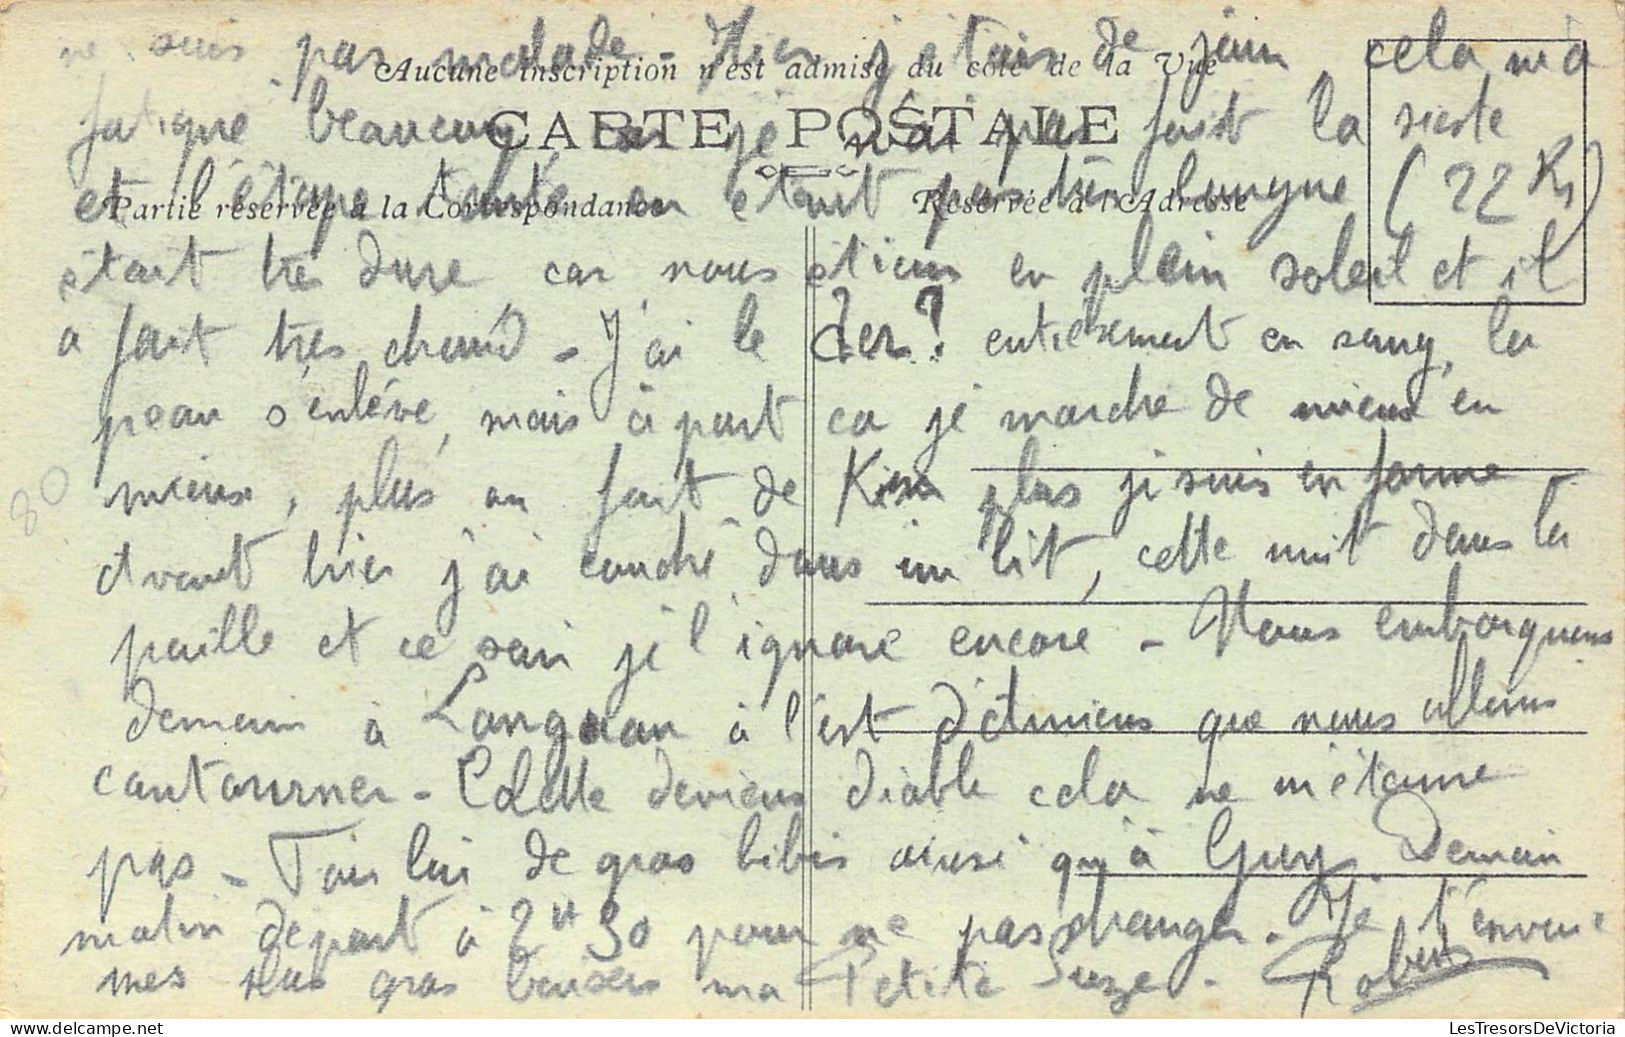 ne suis pas malade - Hier j'étais de jour cela m'a
Aucune inscription n'est admise du côté de la Vue
fatigué beaucoup car je n'ai pas fait la sieste
CARTE POSTALE
et l'étape en était pas très longue (22 Ks)
Partie réservée à la Correspondance
Réservée à l'Adresse
était très dure car nous étions en plein soleil et il
a fait très chaud - J'ai le der? entièrement en sang, la
peau s'enlève, mais à part ca je marche de mieux en
mieux, plus on fait de Km plus je suis en forme -
Avant hier j'ai couché dans un lit, cette nuit dans la
paille et ce soir je l'ignore encore - Nous embarquons
demain à à l'est d'Amiens que nous allons
contourner - Colette deviens diable cela ne m'étonne
pas - Fais lui de gros bibis ainsi qu'à Guy. Demain
matin départ à 2H30 pour ne pas changer. Je t'envoie
mes plus gros baisers ma Petite Suze -
80
LesTresorsDeVictoria.com